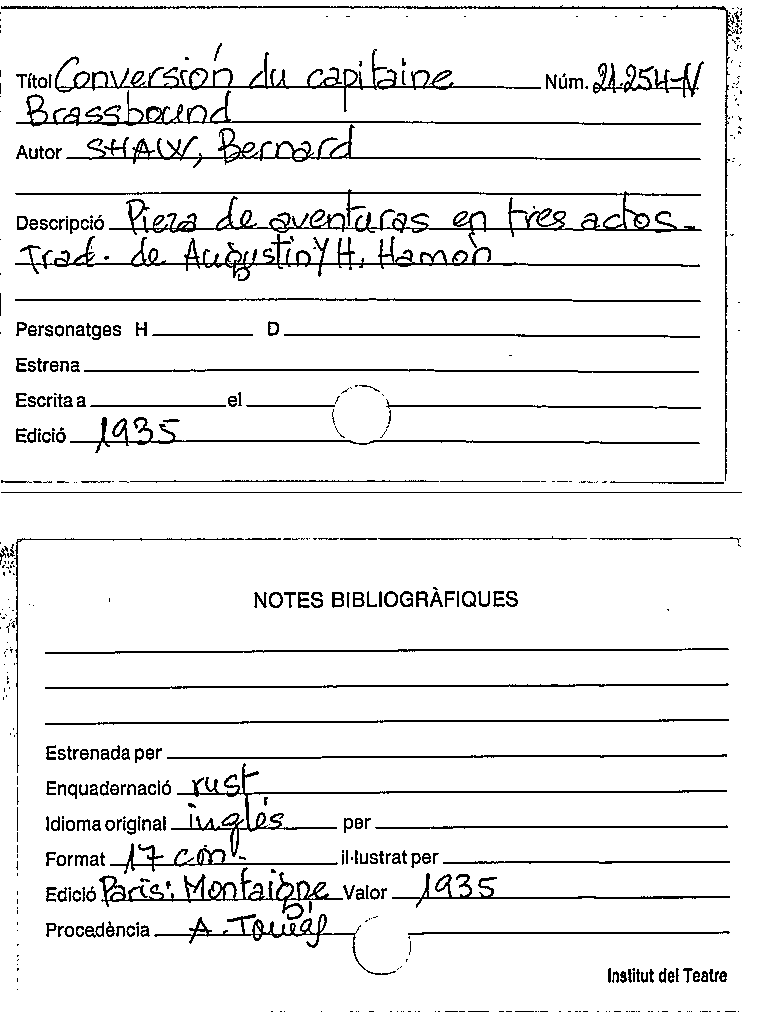 Títol Conversión du capitaine Núm. 21.254-N
Brassbound
Autor SHAW, Bernard
Descripció Pieza de aventuras en tres actos.
Trad. de Augustin Y H. Hamon
Personatges H D
Estrena
Escrita a el
Edició 1935
NOTES BIBLIOGRÀFIQUES
Estrenada per
Enquadernació rust
Idioma original inglés per
Format 17 cm. il·lustrat per
Edició Paris: Montaigne Valor 1935
Procedència A.
Institut del Teatre